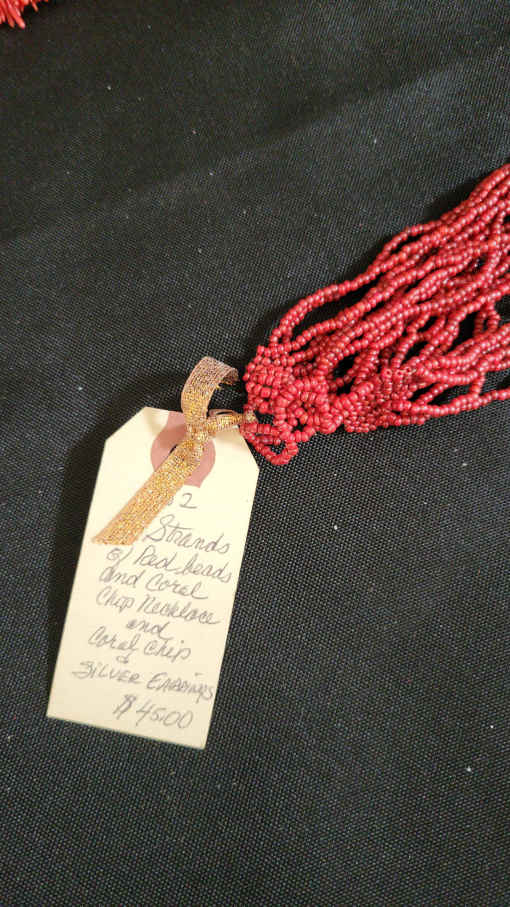 2
Strands
of Red beads
and Coral
Chip Necklace
and
Coral Chip
&
SILVER EARRINGS
$45.00